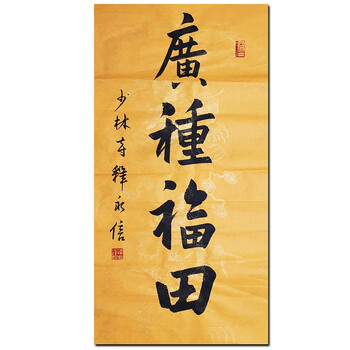 廣種福田
少林寺釋永信